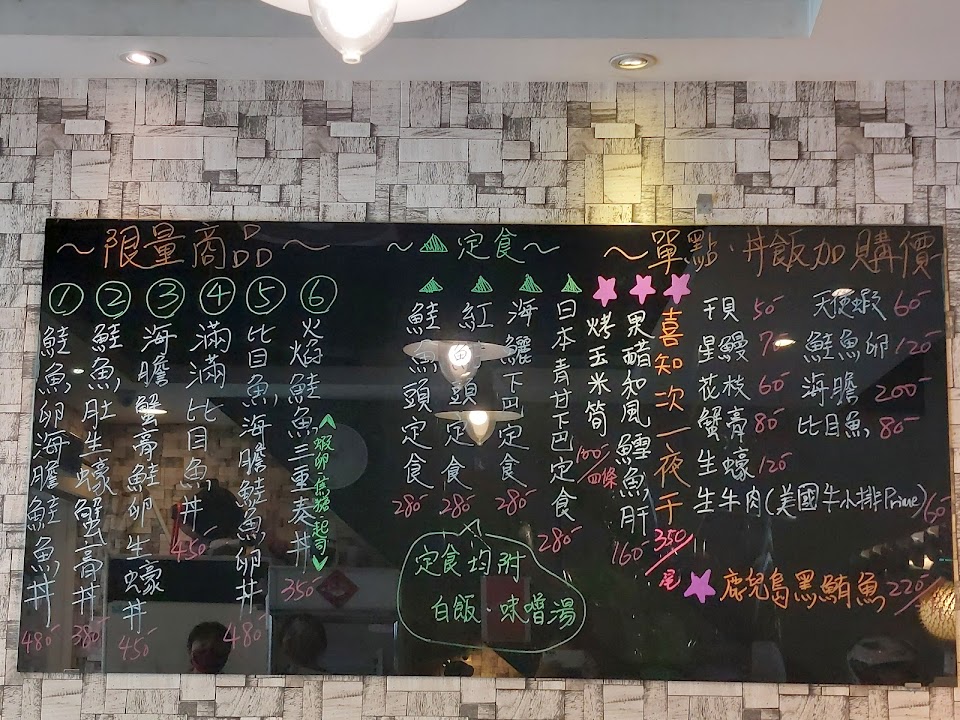 ～限量商品～
①鮭魚卵海膽鮭魚丼 480
②鮭魚肚生蠔蟹膏丼 380
③海膽蟹膏鮭卵生蠔丼 450
④滿滿比目魚丼 450
⑤比目魚海膽鮭魚卵丼 480
⑥火焰鮭魚三重奏丼 350
<蝦卵 焦糖 起司>
～定食～
鮭魚頭定食 280
紅魚頭定食 280
海鱺下巴定食 280
日本青甘下巴定食 280
定食均附
白飯、味噌湯
～單點、丼飯加購價
烤玉米筍 100/四條
果醋和風鱈魚肝 160
喜知次一夜干 350/尾
干貝 50
星鰻 70
花枝 60
蟹膏 80
生蠔 120
生牛肉(美國牛小排Prime) 160
天使蝦 60
鮭魚卵 120
海膽 200
比目魚 80
鹿兒島黑鮪魚 220/